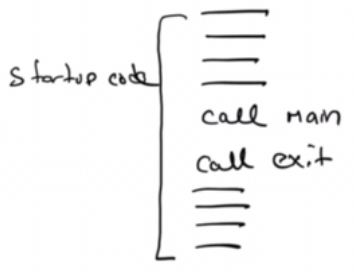 startup code
call main
call exit